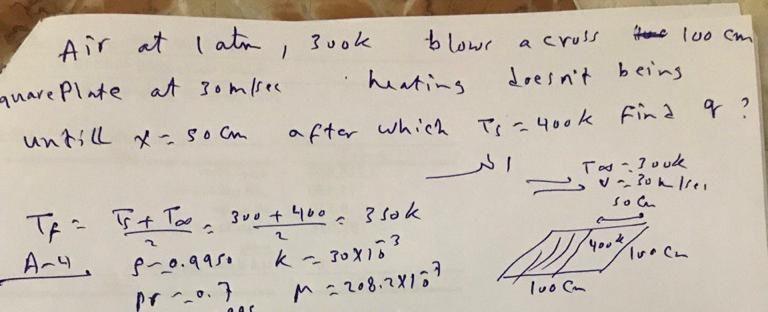 Air at 1 atm, 300k blows across 100 cm
quare Plate at 30 m/sec . heating doesn't being
untill x = 50 cm after which Ts = 400k find q ?
الحل
T∞ = 300k
V = 30 m/sec
50 Cm
400k
100 Cm
100 Cm
Tf = Ts + T∞ / 2 = 300 + 400 / 2 = 350k
A-4 ρ = 0.9950 k = 30×10^-3
pr = 0.7 μ = 208.2×10^-7